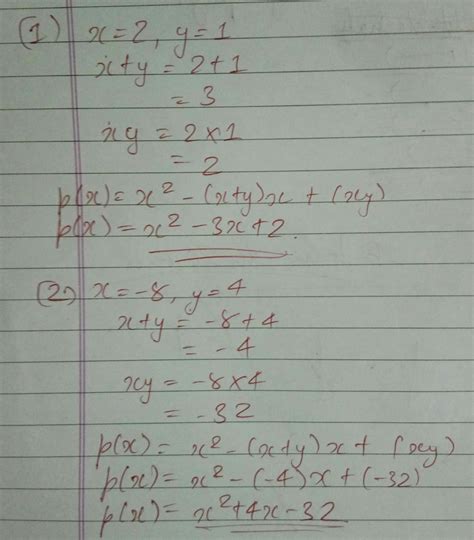 (1) x=2, y=1
x+y = 2+1
= 3
xy = 2×1
= 2
p(x)= x² - (x+y)x + (xy)
p(x) = x² - 3x + 2.
(2) x=-8, y=4
x+y = -8+4
= -4
xy = -8×4
= -32
p(x) = x² - (x+y)x + (xy)
p(x) = x² - (-4)x + (-32)
p(x) = x²+4x-32